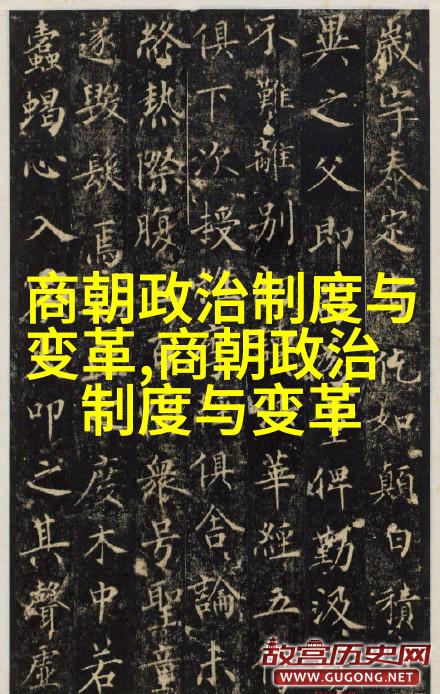 歲字泰定仡如顛白積
異之父即俾勤汲
不難離別華經五
俱下次授俱舍論未
終熱際腹衆号聖童
遂毀焉度木中若
蠹蝎心入叩之其聲虛
商朝政治制度与
变革,商朝政治
制度与变革
故宫历史网
WWW.GUGONG.NET